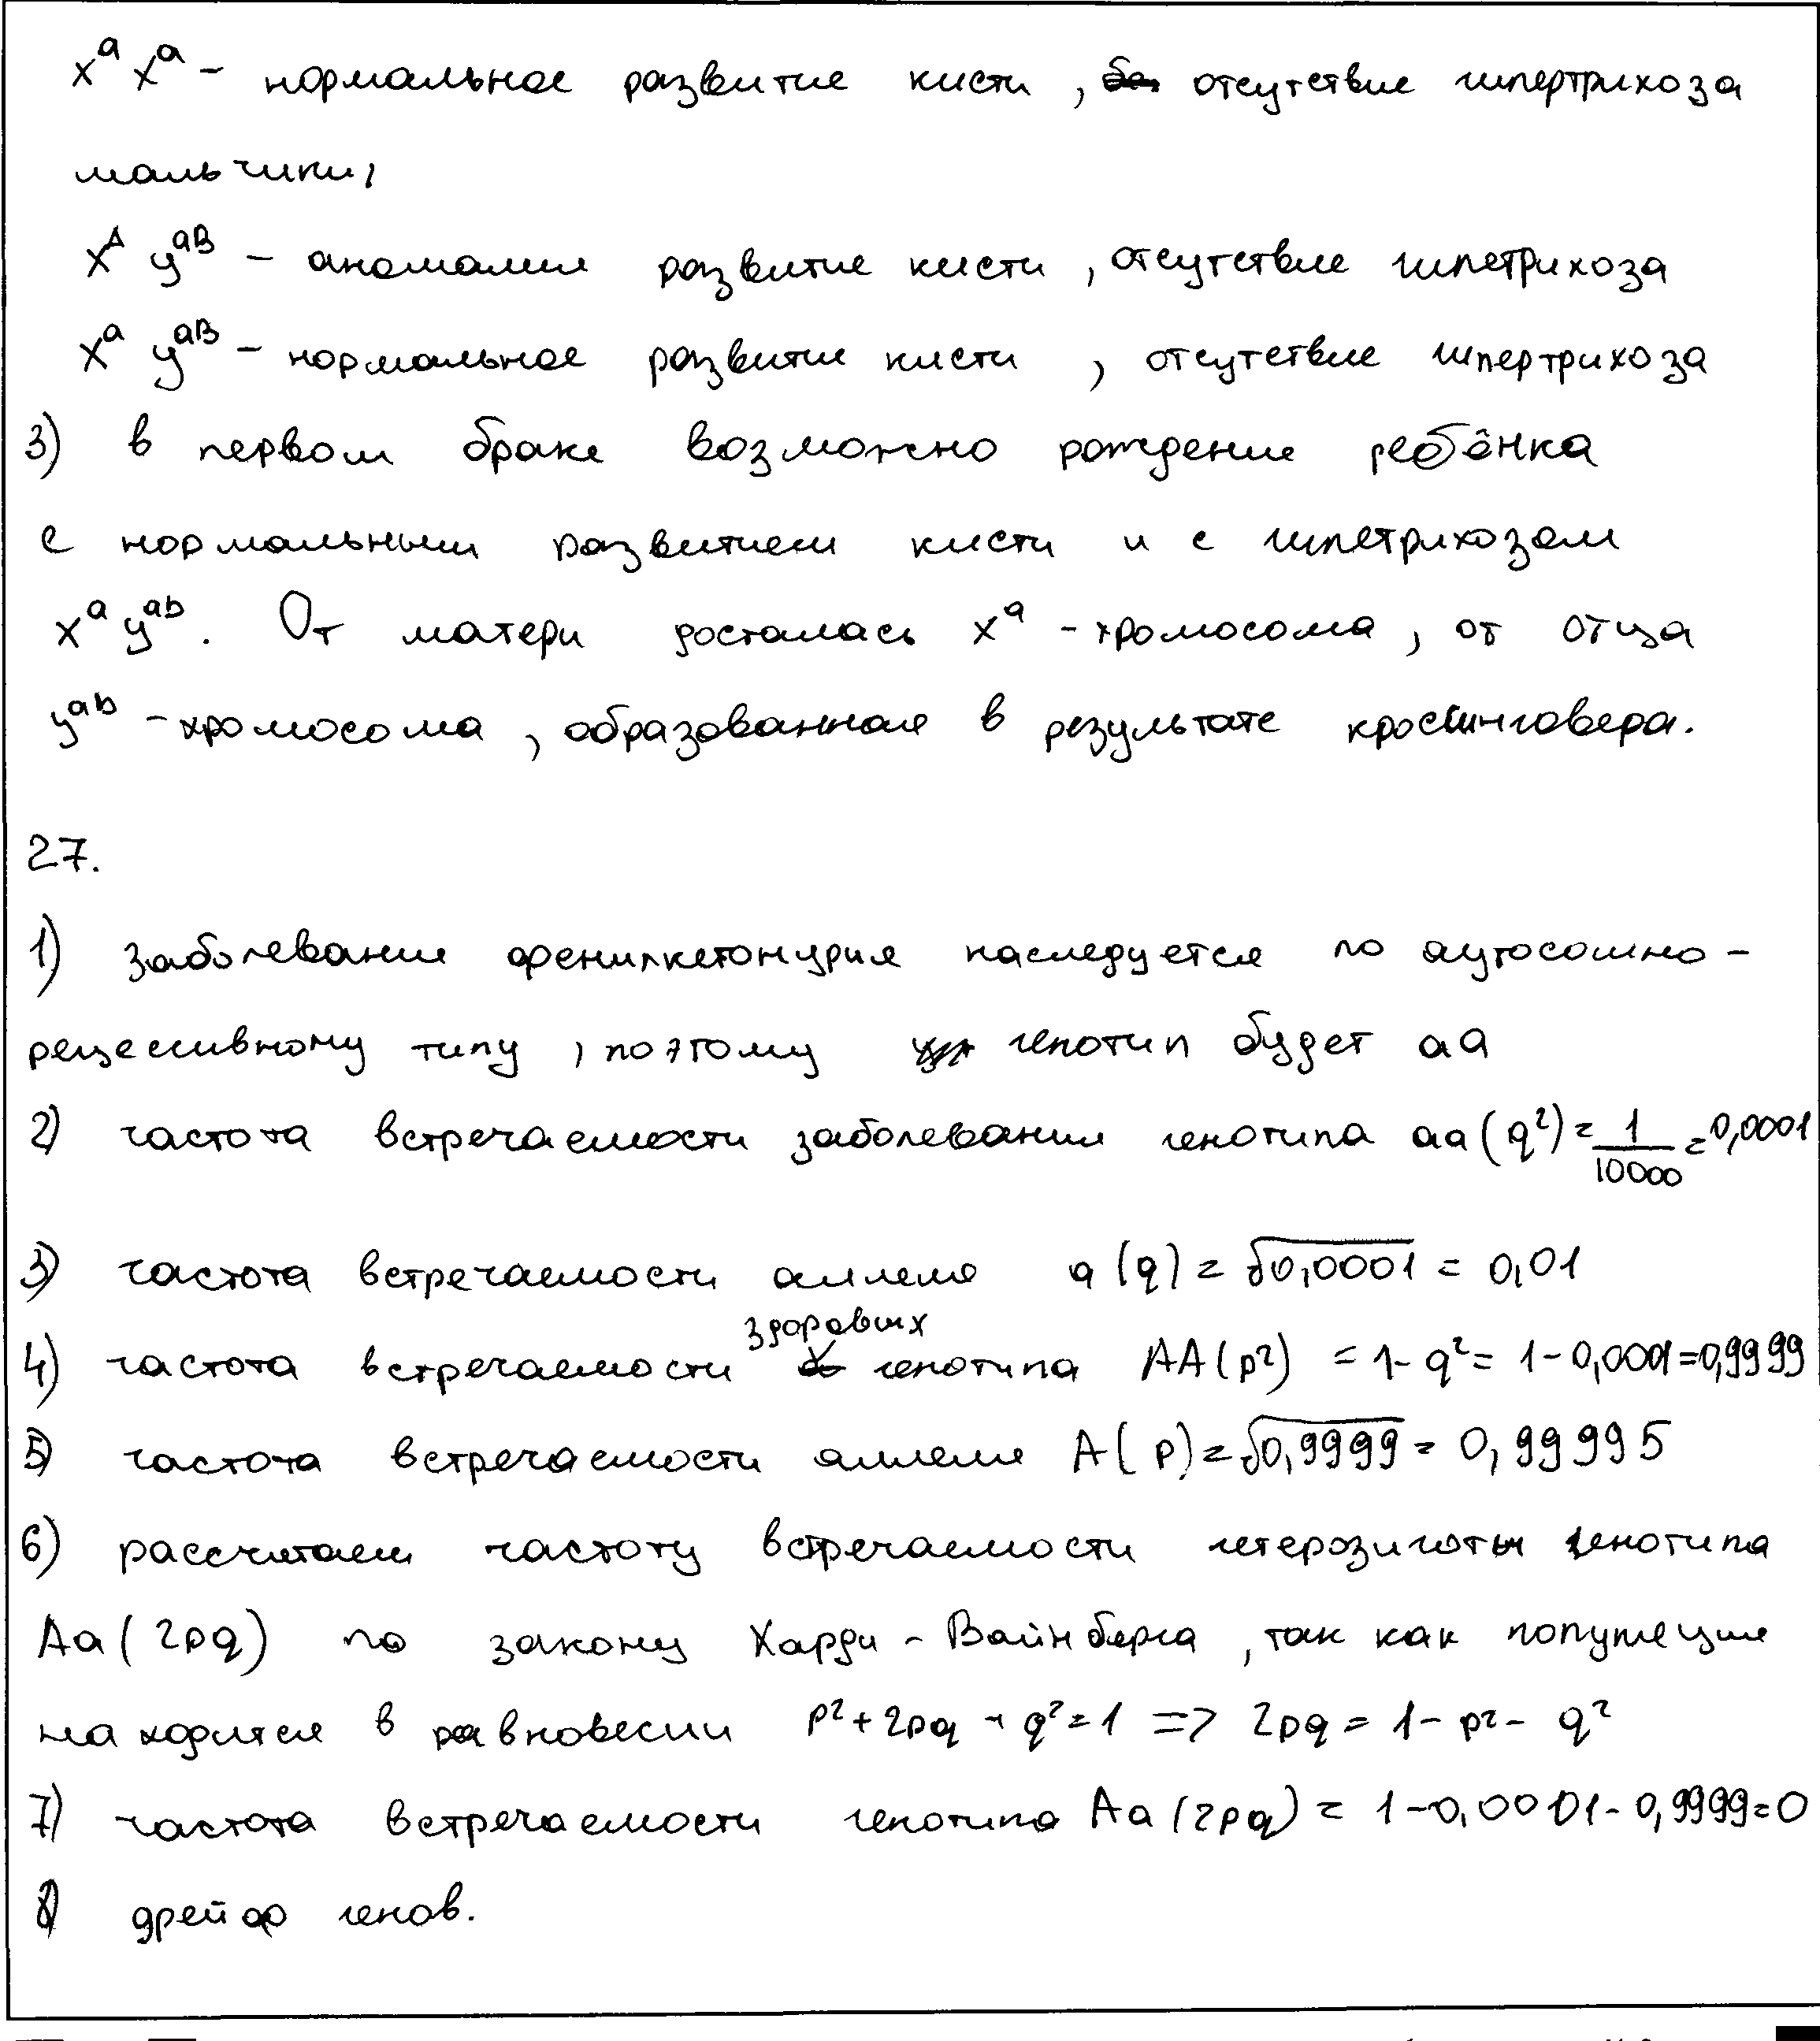 x^a x^a - нормальное развитие кисти, отсутствие гипертрихоза
мальчики,
x^A y^aB - аномалии развитие кисти, отсутствие гипетрихоза
x^a y^aB - нормальное развитие кисти, отсутствие гипертрихоза
3) в первом браке возможно рождение ребёнка
с нормальным развитием кисти и с гипетрихозом
x^a y^ab. От матери досталась x^a - хромосома, от отца
y^ab - хромосома, образованная в результате кроссинговера.
27.
1) заболевание фенилкетонурия наследуется по аутосомно-
рецессивному типу, поэтому генотип будет aa
2) частота встречаемости заболевании генотипа aa(q²) = 1/10000 = 0,0001
3) частота встречаемости аллеля a(q) = √0,0001 = 0,01
4) частота встречаемости здоровых генотипа AA(p²) = 1-q² = 1-0,0001=0,9999
5) частота встречаемости аллеля A(p) = √0,9999 = 0,99995
6) рассчитаем частоту встречаемости гетерозиготы генотипа
Aa(2pq) по закону Харди - Вайнберга, так как популяция
находится в равновесии p²+2pq+q²=1 => 2pq = 1-p²-q²
7) частота встречаемости генотипа Aa(2pq) = 1-0,0001-0,9999=0
8) дрейф генов.